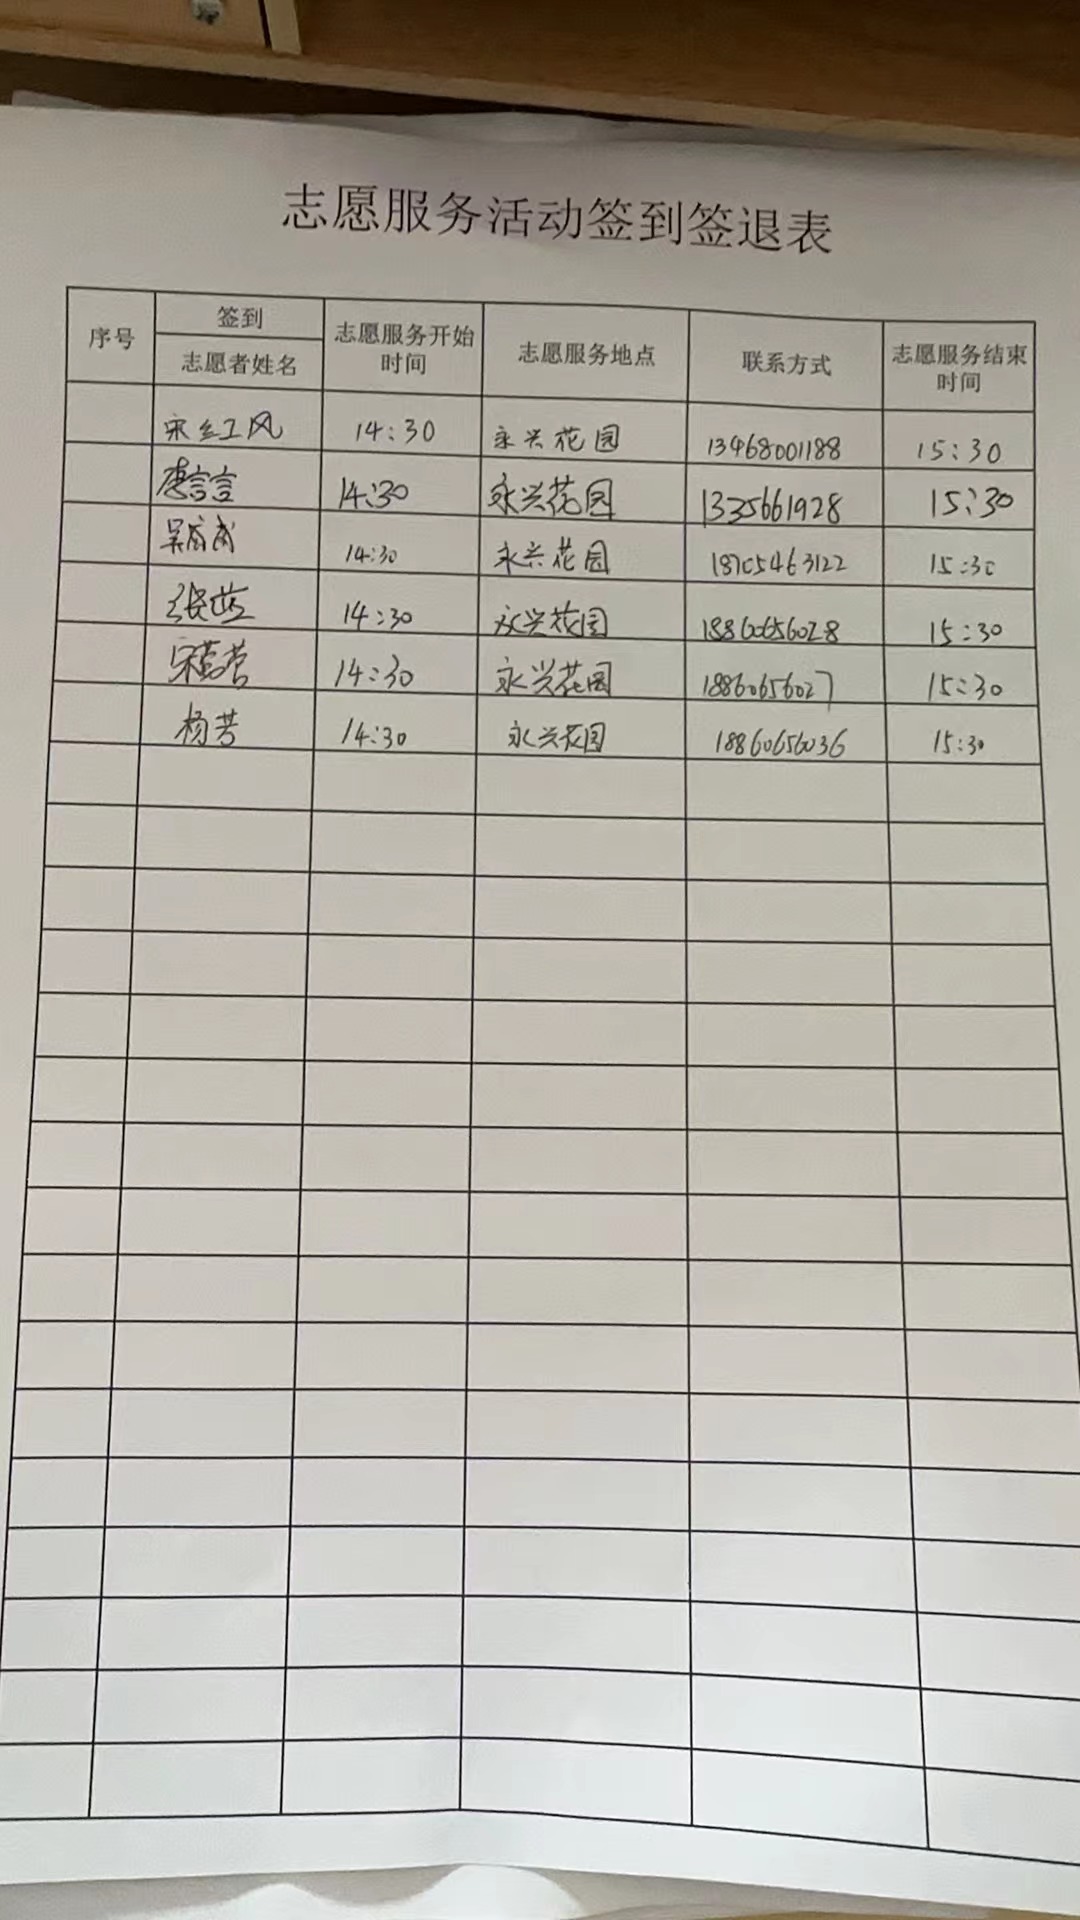 志愿服务活动签到签退表
序号 签到 志愿者姓名 志愿服务开始时间 志愿服务地点 联系方式 志愿服务结束时间
宋红风 14:30 永兴花园 13468001188 15:30
唐言言 14:30 永兴花园 1335661928 15:30
吴 14:30 永兴花园 18705463122 15:30
张蓝 14:30 永兴花园 18860656028 15:30
宋营营 14:30 永兴花园 18860656027 15:30
杨芳 14:30 永兴花园 18860656036 15:30